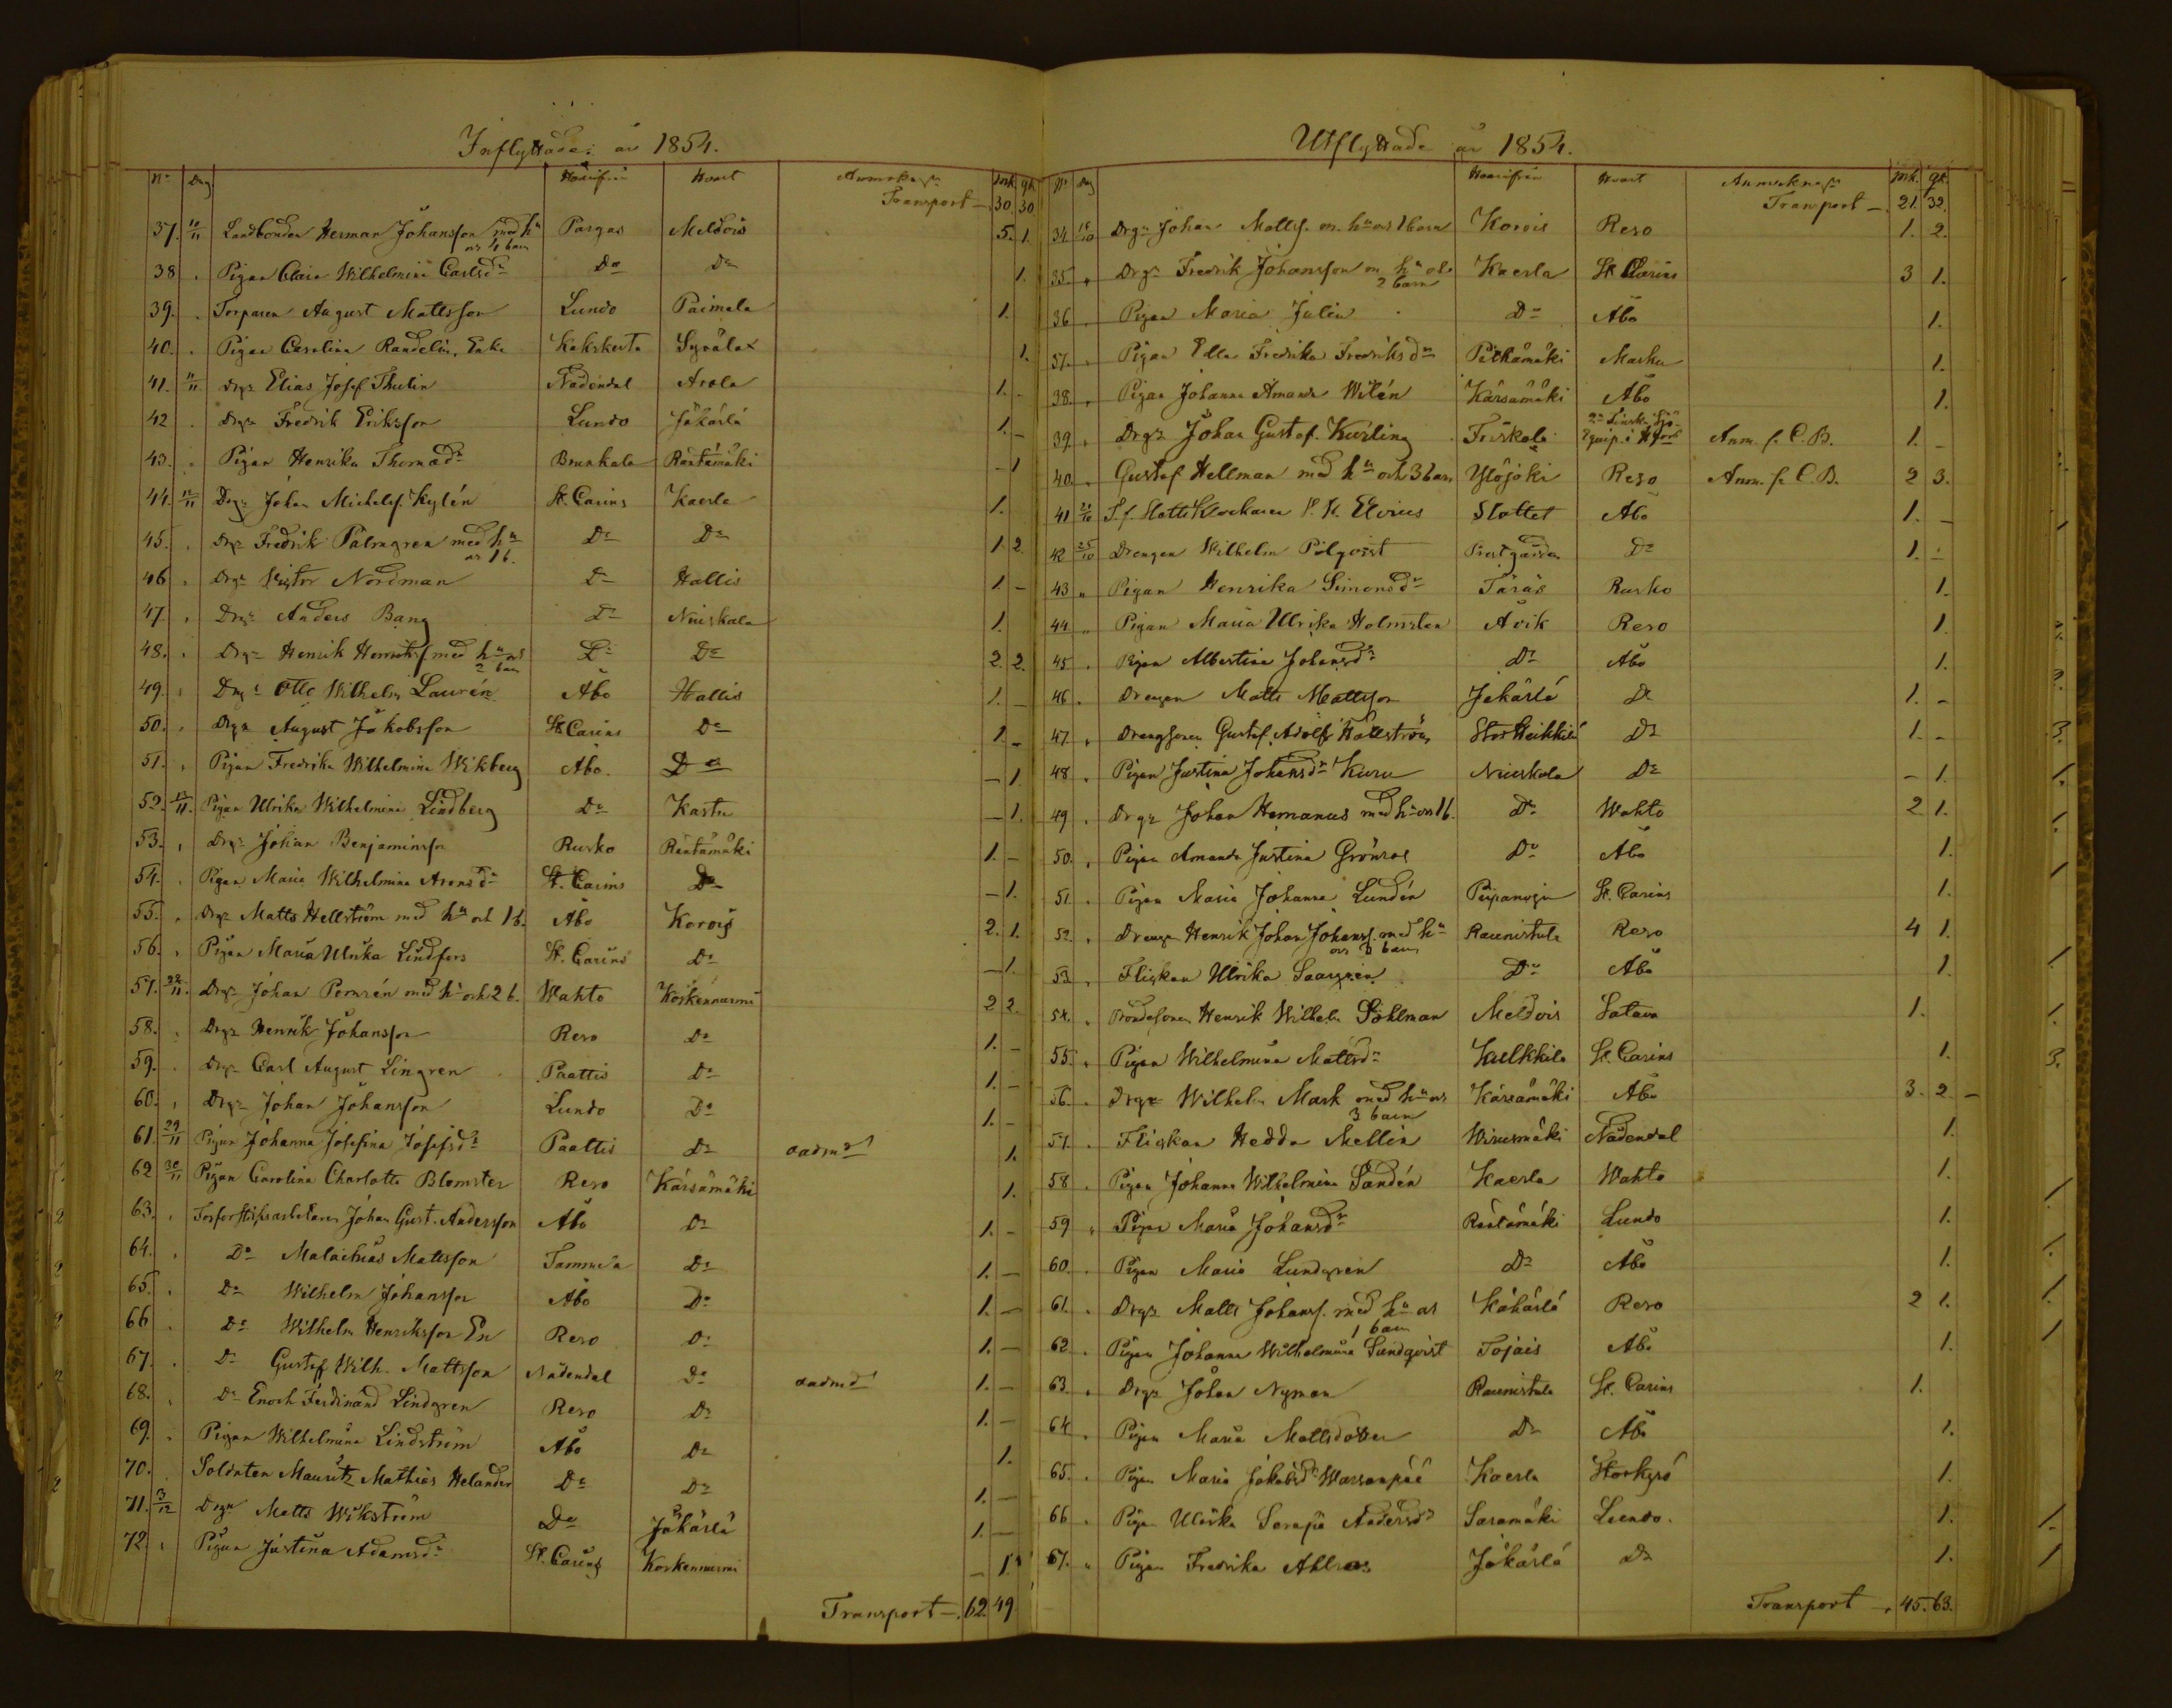 Inflyttade: år 1854.
No Dag Hvarifrån Hvart Anmärkngr mk. qk.
Transport — 30. 30
37. 10/11 Landbonden Herman Johansson med hu Pargas Meldois 5. 1.
os 4 barn
38 . Pigan Clara Wilhelmina Carlsdr Do Do 1.
39. . Torparen August Mattsson Lundo Paimala 1.
40. . Pigan Carolina Randelin, Enka Kakskerta 1.
41. 11/11 Drgn Elias Josef Thulin Nådendal Arola 1. -
42 . Drgn Fredrik Eriksson Lundo Jäkärlä 1. -
43. . Pigan Henrika Thomasdr Brunkala Räntämäki - 1
44. 12/11 Drgn Johan Michelsf. Kylén St. Carins Kaerla 1.
45. . Drgn Fredrik Palmgren med hu Do Do 1. 2.
os 1 b.
46 . Drgn Victor Nordman Do Hallis 1. -
47. . Drgn Anders Bang Do Niuskala 1.
48. . Drgn Henrik Henriksf med hu os Do Do 2. 2.
2 barn
49. . Drgn Otto Wilhelm Laurén Åbo Hallis 1. -
50. . Drgn August Jakobsson St. Carins Do 1. -
51. . Pigan Fredrika Wilhelmina Wikberg Åbo. Do - 1
52. 13/11. Pigan Ulrika Wilhelmina Lindberg Do Kastu - 1.
53. . Drgn Johan Benjaminsson Rusko Räntämäki 1. -
54. . Pigan Maria Wilhelmina Aronsdr St. Carins Do - 1.
55. . Drgn Matts Hellström med hu och 1 b. Åbo Korois 2. 1.
56. . Pigan Maria Ulrika Lindfors St. Carins Do - 1.
57. 22/11. Drgn Johan med hu och 2 b. Wahto Koskennurmi 2 2.
58. . Drgn Henrik Johansson Reso Do 1. -
59. . Drgn Carl August Lingren Paattis Do 1. -
60. . Drgn Johan Johansson Lundo Do 1. -
61. 29/11 Pigan Johanna Josefina Josefsdr Paattis Do oadmd 1.
62 30/11 Pigan Carolina Charlotta Blomster Reso Kärsämäki 1.
63. . Johan Gust. Andersson Åbo Do 1. -
64. . Do Malachias Mattsson Tammela Do 1. -
65. . Do Wilhelm Johansson Åbo Do 1. -
66 . Do Wilhelm Henriksson En Reso Do 1. -
67. . Do Gustaf Wilh. Mattsson Nådendal Do oadmd 1. -
68. . Do Enoch Ferdinand Lindgren Reso Do 1. -
69. . Pigan Wilhelmina Lindström Åbo Do 1.
70. . Soldaten Mauritz Mathias Helander Do Do 1. -
71. 3/12 Drgn Matts Wikström Do Jäkärlä 1. -
72. . Pigan Justina Adamsdr St. Carins Koskennurmi - 1.
Transport —. 62. 49.
Utflyttade år 1854.
No Dag Hvarifrån Hvart Anmärkngr mk. qk.
Transport — 21. 32.
34. Drgn Johan Mattsf. m. hu os 1 barn Korois Reso 1. 2.
35. . Drgn Fredrik Johansson m. hu ok Kaerla St. Carins 3 1.
2 barn
36 . Pigan Maria Julin Do Åbo 1.
37. . Pigan Edla Fredrika Fredriksdr Masku 1.
38. . Pigan Johanna Amanda Wilén Kärsämäki Åbo 1.
39. . Drgn Johan Gustaf Kurling Anm. f. C. B. 1. -
40. . Gustaf Hellman med hu och 3 barn Ylöjoki Reso Anm. f. C. B. 2 3.
41 Elvius Slottet Åbo 1. -
42 25/10 Drengen Wilhelm Pilqvist Prestgården Do 1. -
43 . Pigan Henrika Simonsdr Taräs Rusko 1.
44 . Pigan Maria Ulrika Holmsten Avik Reso 1.
45 . Pigan Albertina Johansdr Do Åbo 1.
46 . Drengen Matts Mattsson Jäkärlä Do 1. -
47 . Drengsonen Gustaf Adolf Hällström Stor Heikkilä Do 1. -
48 . Pigan Justina Johansdr Kuru Niuskala Do - 1.
49 . Drgn Johan Hermanus med hu os 1 b. Do Wahto 2 1.
50. . Pigan Amanda Justina Grönroos Do Åbo 1.
51. . Pigan Maria Johanna Lundén St. Carins 1.
52. . Drengen Henrik Johan Johansf. med hu Raunistula Reso 4 1.
barn
53. . Flickan Ulrika Do Åbo 1.
54. . Bondesonen Henrik Wilhelm Söhlman Meldois Satava 1.
55. . Pigan Wilhelmina Mattsdr St. Carins 1.
56. . Drgn Wilhelm Mark med hu os Kärsämäki Åbo 3. 2 -
3 barn
57. . Flickan Hedda Mellin Wirusmäki Nådendal 1.
58 . Pigan Johanna Wilhelmina Sandén Kaerla Wahto 1.
59 . Pigan Maria Johansdr Räntämäki Lundo 1.
60. . Pigan Maria Lundgren Do Åbo 1.
61. . Drgn Matts Johansf. med hu os Kähärlä Reso 2 1.
1 barn
62. . Pigan Johanna Wilhelmina Sandqvist Tojais Åbo 1.
63. . Drgn Johan Nyman Raunistula St. Carins 1.
64 . Pigan Maria Mattsdotter Do Åbo 1.
65. . Pigan Maria Jakobsdr Warsanpää Kaerla Storkyrö 1.
66 . Pigan Ulrika Serafia Andersdr Saramäki Lundo. 1.
67. . Pigan Fredrika Ahlroos Jäkärlä Do 1.
Transport —. 45. 63.